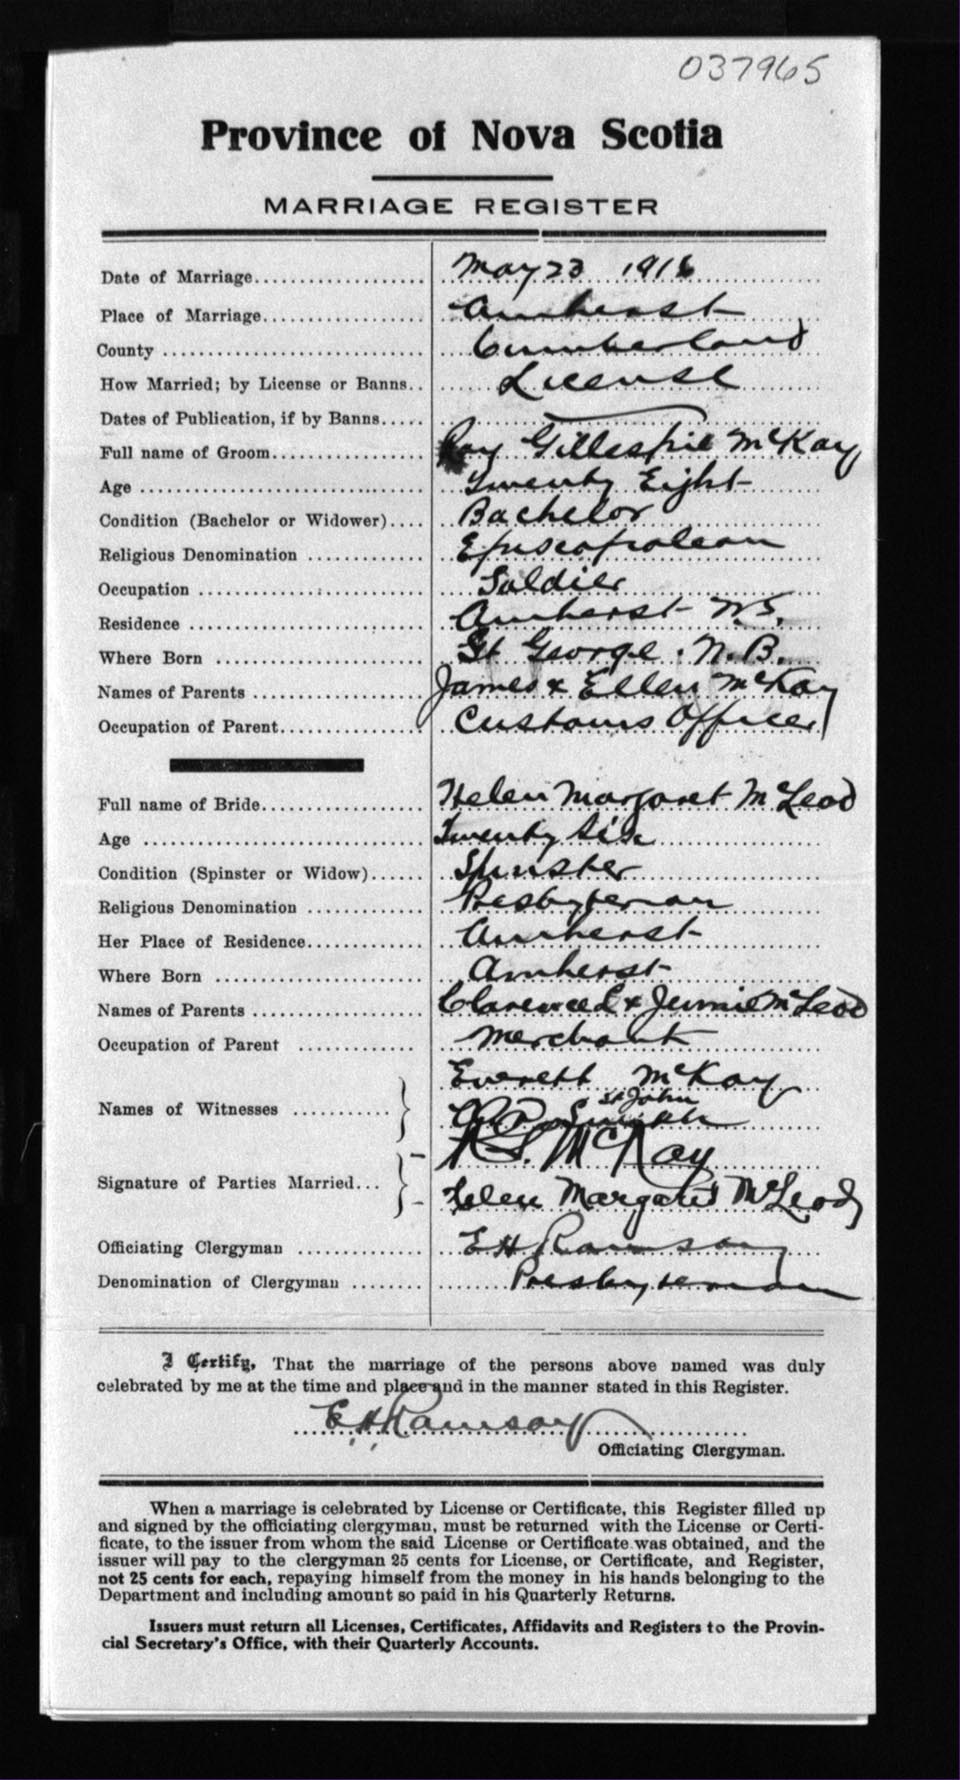 037965
Province of Nova Scotia
MARRIAGE REGISTER
Date of Marriage................... May 23 1916
Place of Marriage.................. Amherst
County ............................ Cumberland
How Married; by License or Banns.. License
Dates of Publication, if by Banns.....
Full name of Groom................. Roy Gillespie McKay
Age ............................... Twenty Eight
Condition (Bachelor or Widower).... Bachelor
Religious Denomination ............ Episcopalean
Occupation ........................ Soldier
Residence ......................... Amherst N.S.
Where Born ........................ St George. N.B.
Names of Parents .................. James & Ellen McKay
Occupation of Parent............... Customs Officer
Full name of Bride................. Helen Margaret McLeod
Age ............................... Twenty Six
Condition (Spinster or Widow)...... Spinster
Religious Denomination ............ Presbyterian
Her Place of Residence............. Amherst
Where Born ........................ Amherst
Names of Parents .................. Clarence E & Jennie McLeod
Occupation of Parent ............. Merchant
Everett McKay
St John
Names of Witnesses ........... Smith
McKay
Signature of Parties Married...
Helen Margaret McLeod
Officiating Clergyman ............. E H Ramsay
Denomination of Clergyman ........ Presbyterian
I Certify, That the marriage of the persons above named was duly
celebrated by me at the time and place and in the manner stated in this Register.
E H Ramsay
Officiating Clergyman.
When a marriage is celebrated by License or Certificate, this Register filled up
and signed by the officiating clergyman, must be returned with the License or Certi-
ficate, to the issuer from whom the said License or Certificate was obtained, and the
issuer will pay to the clergyman 25 cents for License, or Certificate, and Register,
not 25 cents for each, repaying himself from the money in his hands belonging to the
Department and including amount so paid in his Quarterly Returns.
Issuers must return all Licenses, Certificates, Affidavits and Registers to the Provin-
cial Secretary's Office, with their Quarterly Accounts.